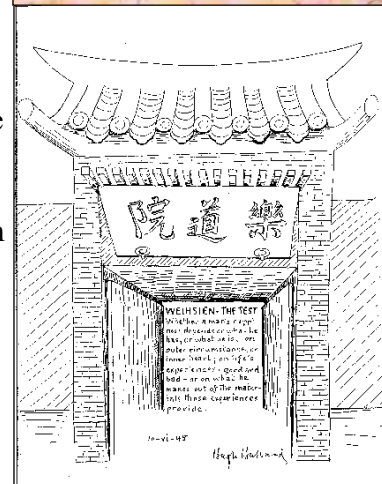 樂道院
WEIHSIEN - THE TEST
Whether a man's happi-
ness depends on what he
has, or what he is, on
outer circumstance, or
inner heart; on life's
experiences - good and
bad - or on what he
makes out of the mater-
ials those experiences
provide.
10-vi-45
Hugh Hubbard